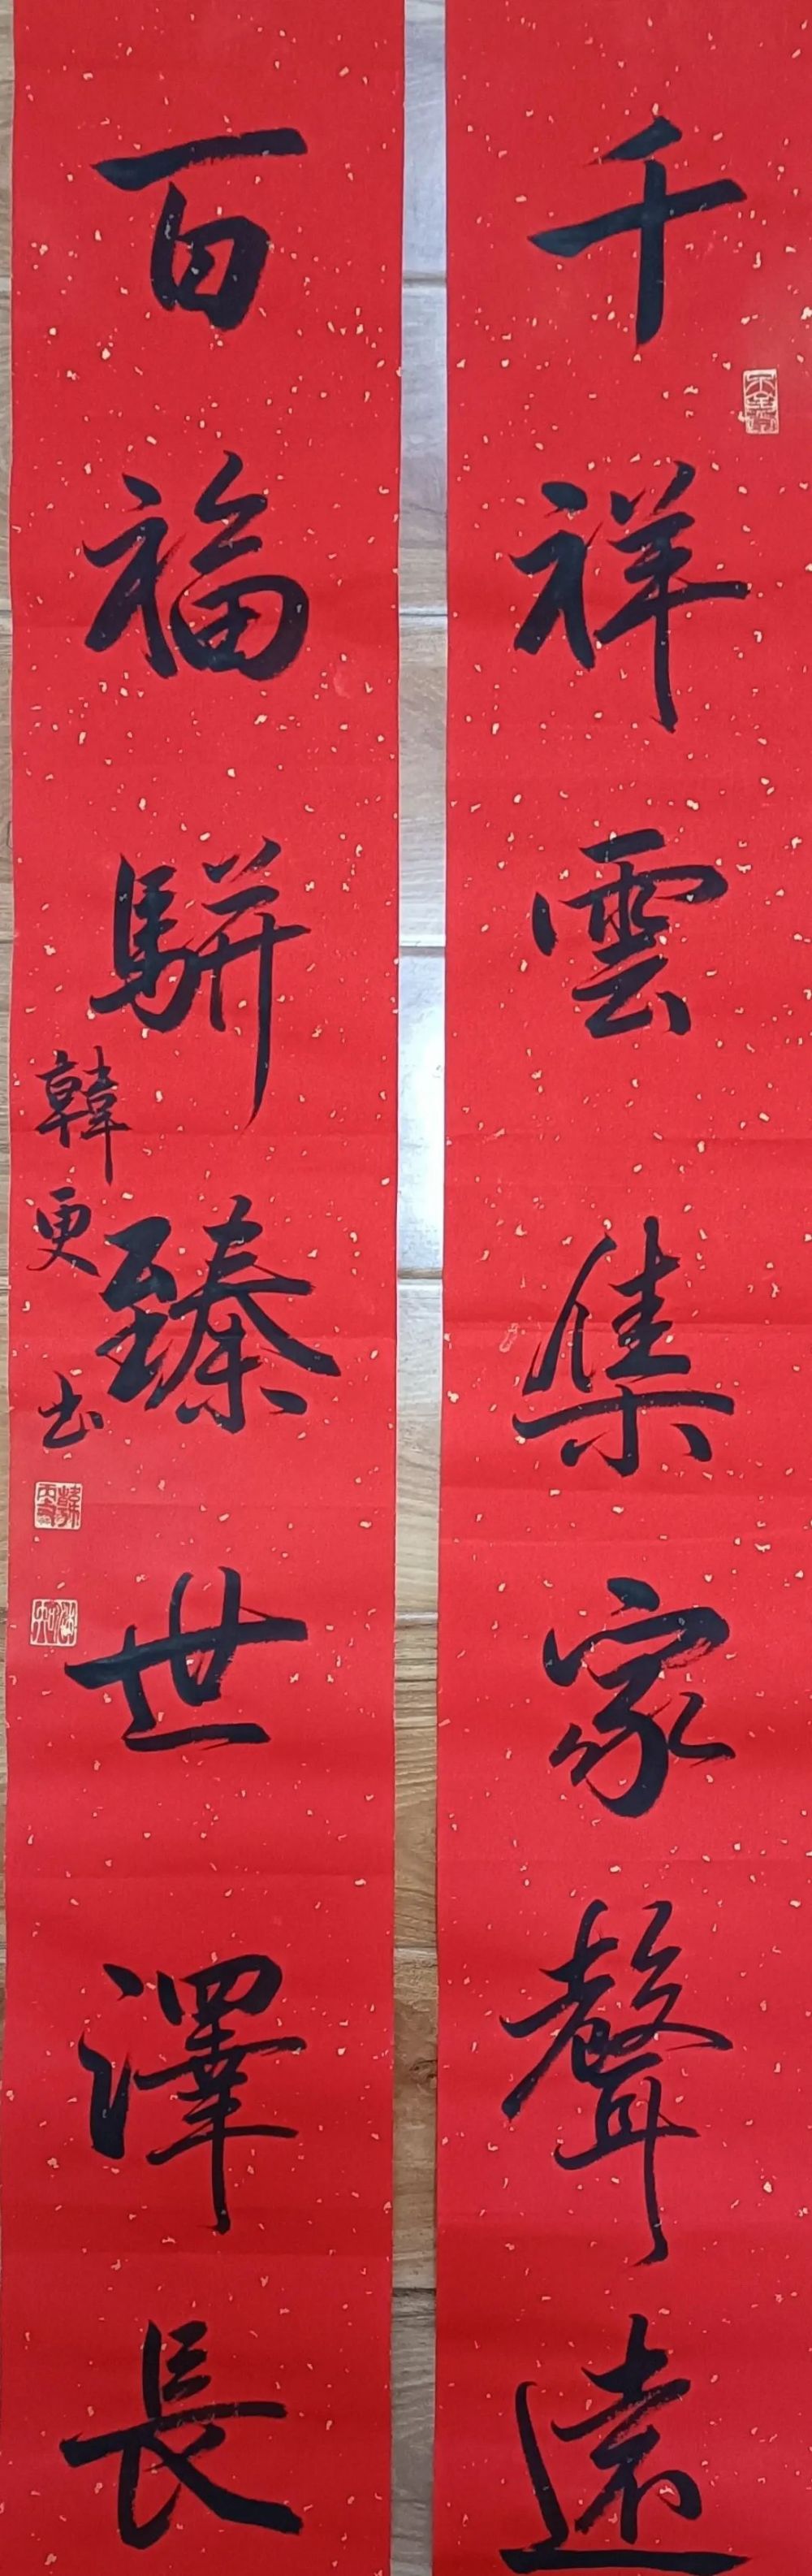 千祥雲集家聲遠
百福駢臻世澤長
韓更书